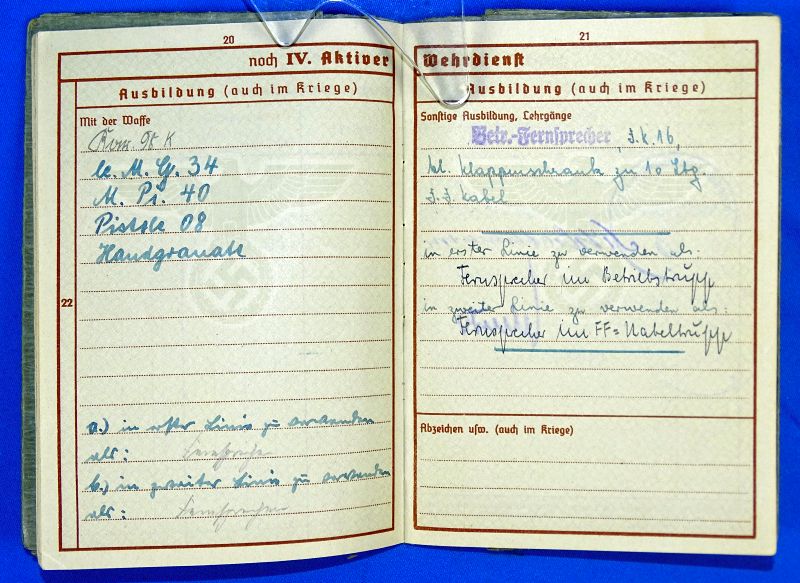 20
noch IV. Aktiver
Ausbildung (auch im Kriege)
Mit der Waffe
K
le. M. G. 34
M. Pi. 40
Pistole 08
Handgranate
22
a.) in erster Linie zu verwenden
als: Fernsprecher
b.) in zweiter Linie zu verwenden
als: Fernsprecher
21
Wehrdienst
Ausbildung (auch im Kriege)
Sonstige Ausbildung, Lehrgänge
Betr.-Fernsprecher, F.k.16,
kl. Klappenschrank zu 10 Ltg.
F.F. Kabel
in erster Linie zu verwenden als:
Fernsprecher im Betriebstrupp
in zweiter Linie zu verwenden als:
Fernsprecher im FF=Kabeltrupp
Abzeichen usw. (auch im Kriege)